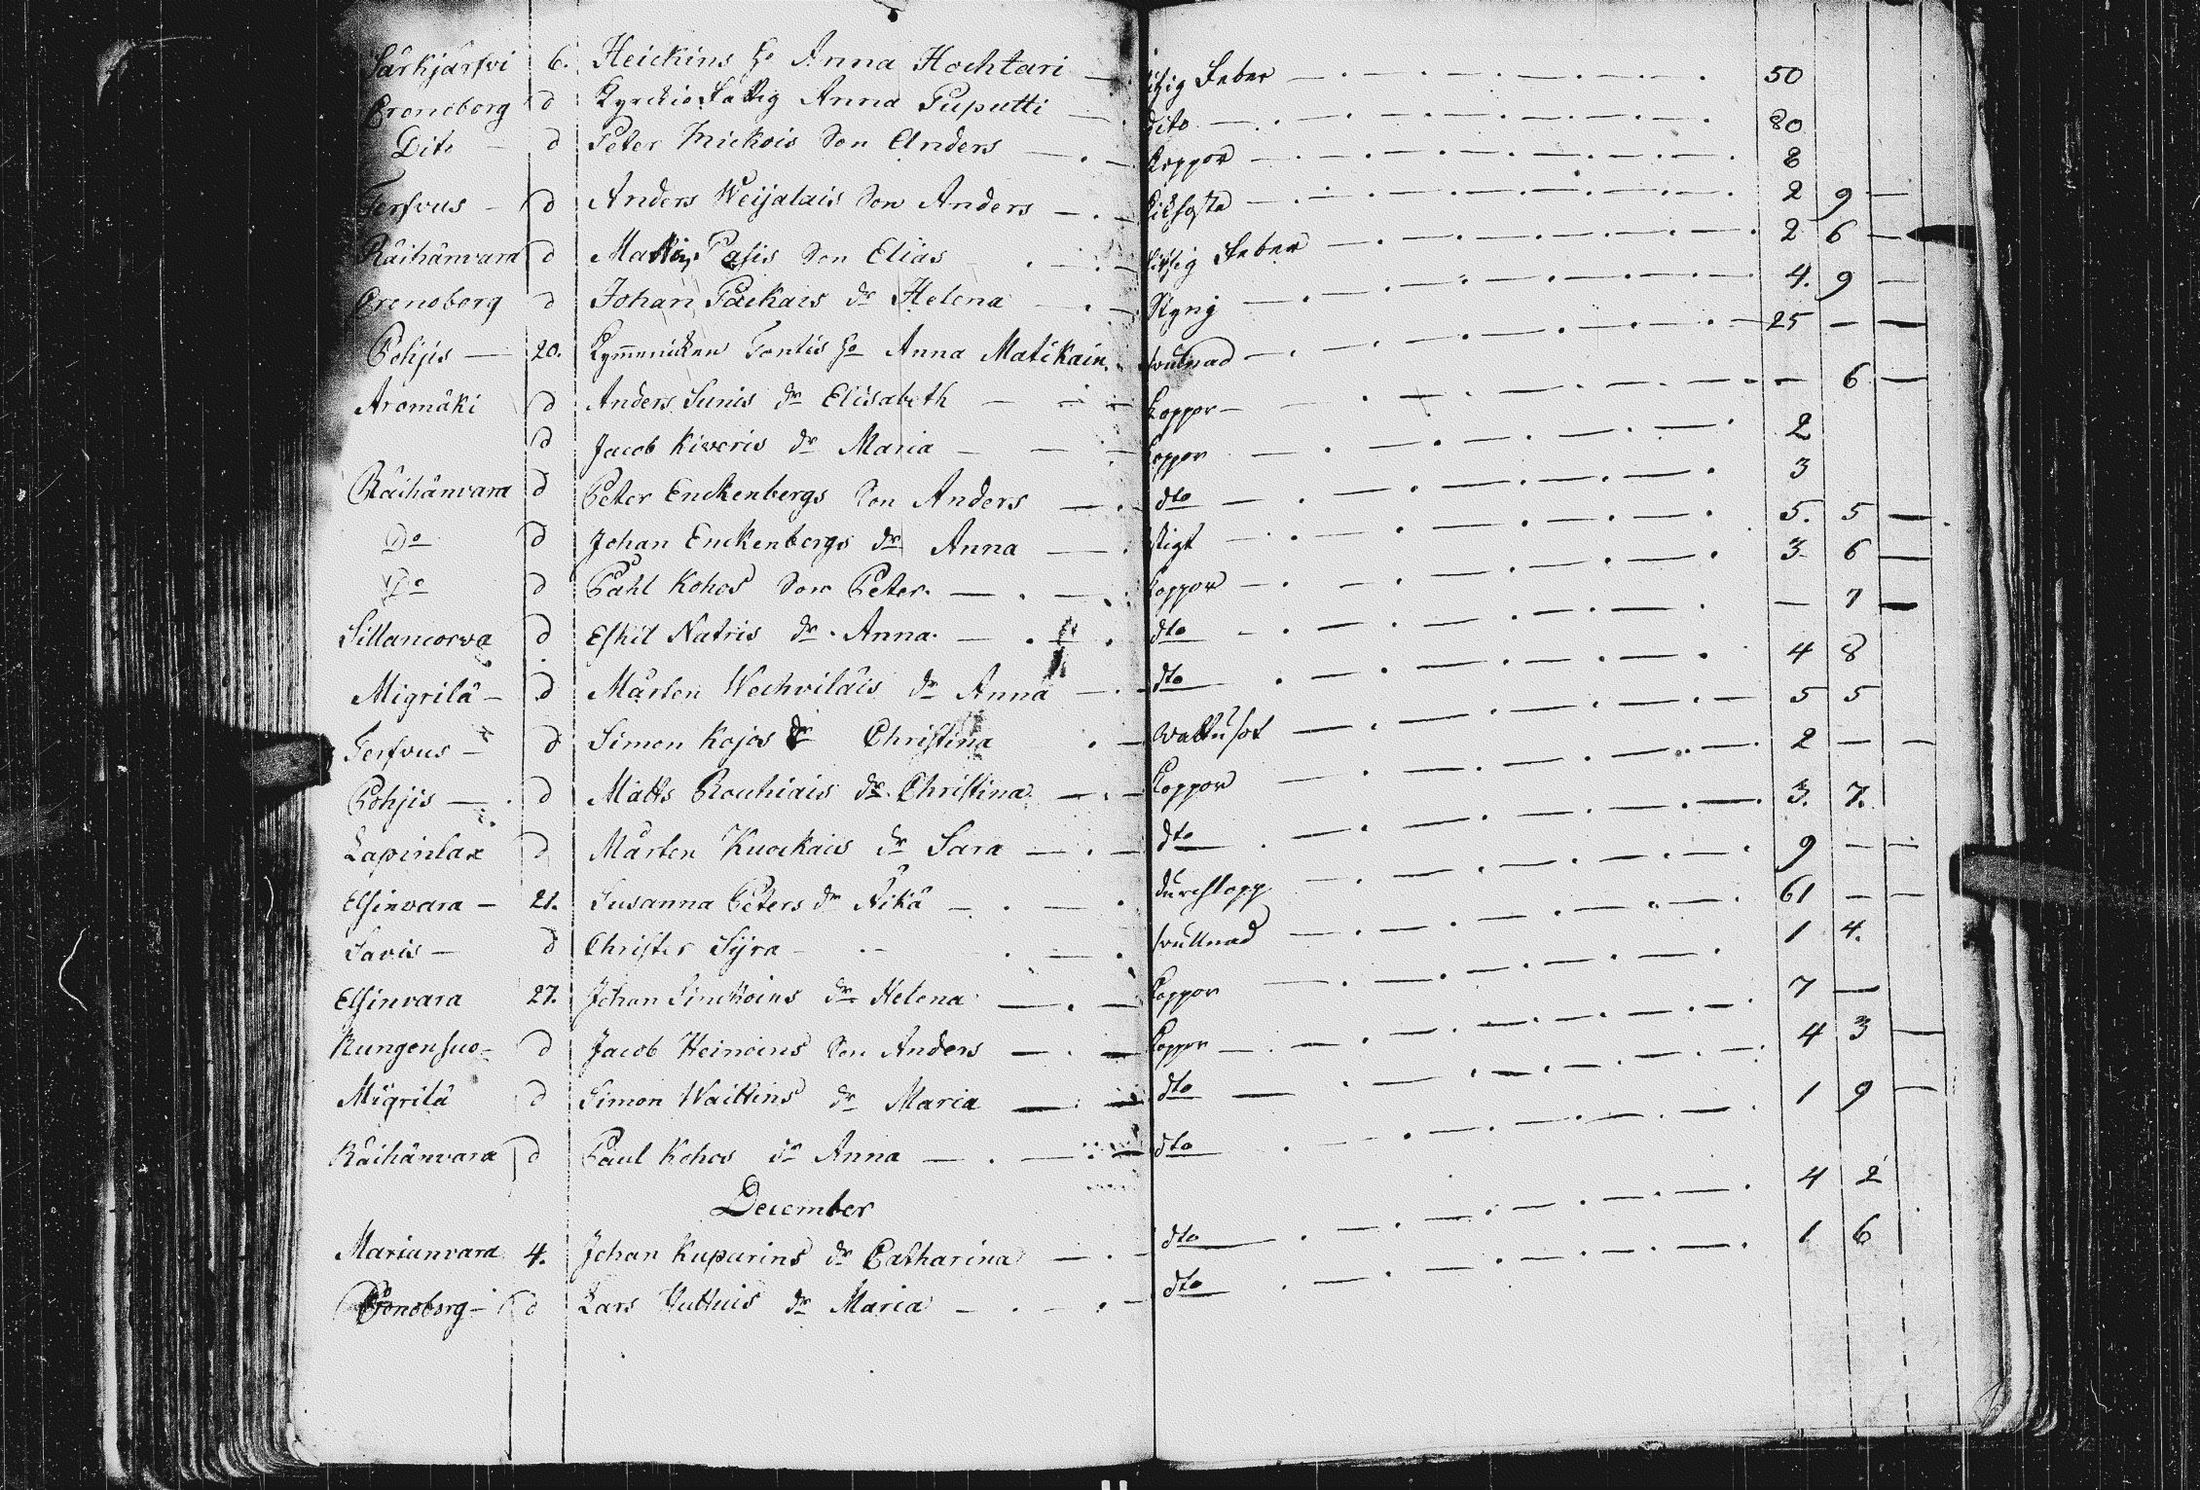 Särkjärfvi 6. Heickins Ho Anna Hochtari — Hitzig Feber — 50
Croneborg d Kyrckio Fattig Anna Puputti — dito — 80
Dito d Peter Mickois Son Anders — Koppor — 8
Terfvus d Anders Weijalais Son Anders — Kikhosta — 2 9 —
Räihänvara d Matts Pasis Son Elias — Hitsig Feber — 2 6 —
Cronoborg d Johan Packais dr Helena — Styng — 4. 9 —
Pohjis — 20. Kymenicken Tontis Ho Anna Matikain. — svulnad — 25 — —
Aromäki d Anders Sunis dr Elisabeth — Koppor — — 6 —
d Jacob Kiveris dr Maria — Koppor — 2
Räihänvara d Peter Enckenbergs Son Anders — dto — 3
Do d Johan Enckenbergs dr Anna — Bligt — 5. 5 —
Do d Påhl Kohos Son Peter. — Koppor — 3 6 —
Sillancorva d Eskil Natris dr Anna. — dto — — 7 —
Migrilä — d Mårten Wechviläis dr Anna — dto — 4 8
Terfvus — d Simon Kojos dr Christina — Wattusot — 5 5
Pohjis — d Matts Rouhiais dr Christina — Koppor — 2 — —
Lapinlax d Mårten Kuockais dr Sara — dto — 3. 7.
Elsinvara — 21. Susanna Peters dr Nikä — durchlopp — 9 — —
Savis — d Christer Sÿra — svullnad — 61 — —
Elsinvara 27. Johan Sinckoins dr Helena — Koppor — 1 4.
Kungensuo — d Jacob Heinoins Son Anders — Koppor — 7 —
Migrilä d Simon Waittins dr Maria — dto — 4 3 —
Räihänvara d Paul Kohos dr Anna — dto — 1 9 —
December
Marianvara 4. Johan Kuparins dr Catharina — dto — 4 2
Cronoborg — d Lars Huttuis dr Maria — dto — 1 6